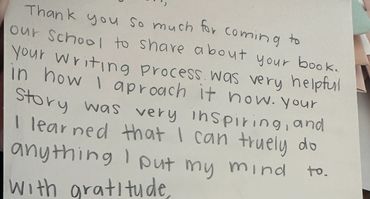 Thank you so much for coming to
our school to share about your book.
your writing process was very helpful
in how I aproach it now. your
story was very inspiring, and
I learned that I can truely do
anything I put my mind to.
with gratitude,